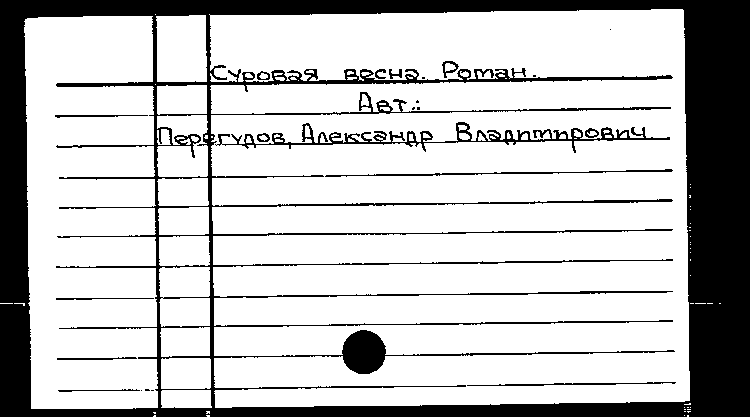 Суровая весна. Роман.
Авт.:
Перегудов, Александр Владимирович